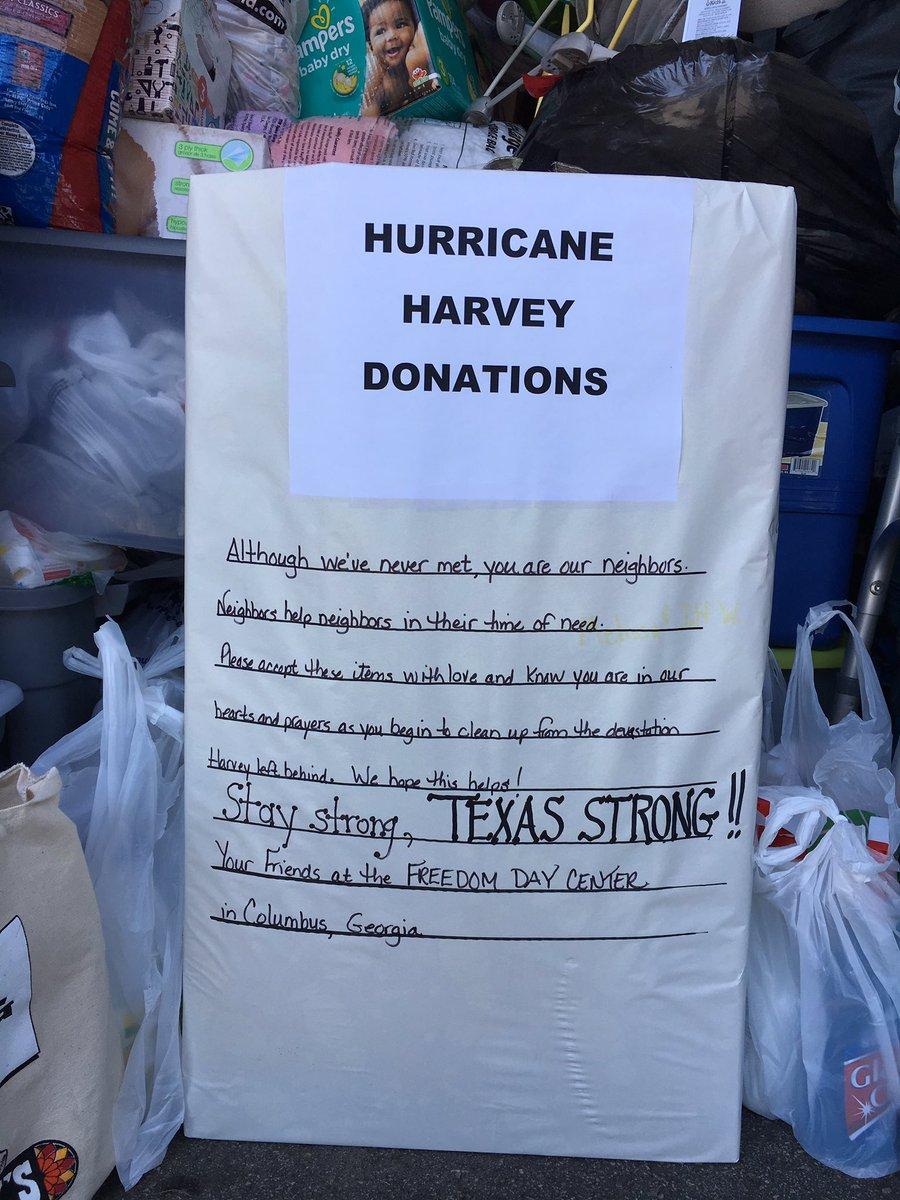 Pampers
baby dry
CLASSICS
3 ply thick
HURRICANE
HARVEY
DONATIONS
Although we've never met, you are our neighbors.
Neighbors help neighbors in their time of need.
Please accept these items with love and know you are in our
hearts and prayers as you begin to clean up from the devastation
Harvey left behind. We hope this helps!
Stay strong, TEXAS STRONG!!
Your Friends at the FREEDOM DAY CENTER
in Columbus, Georgia